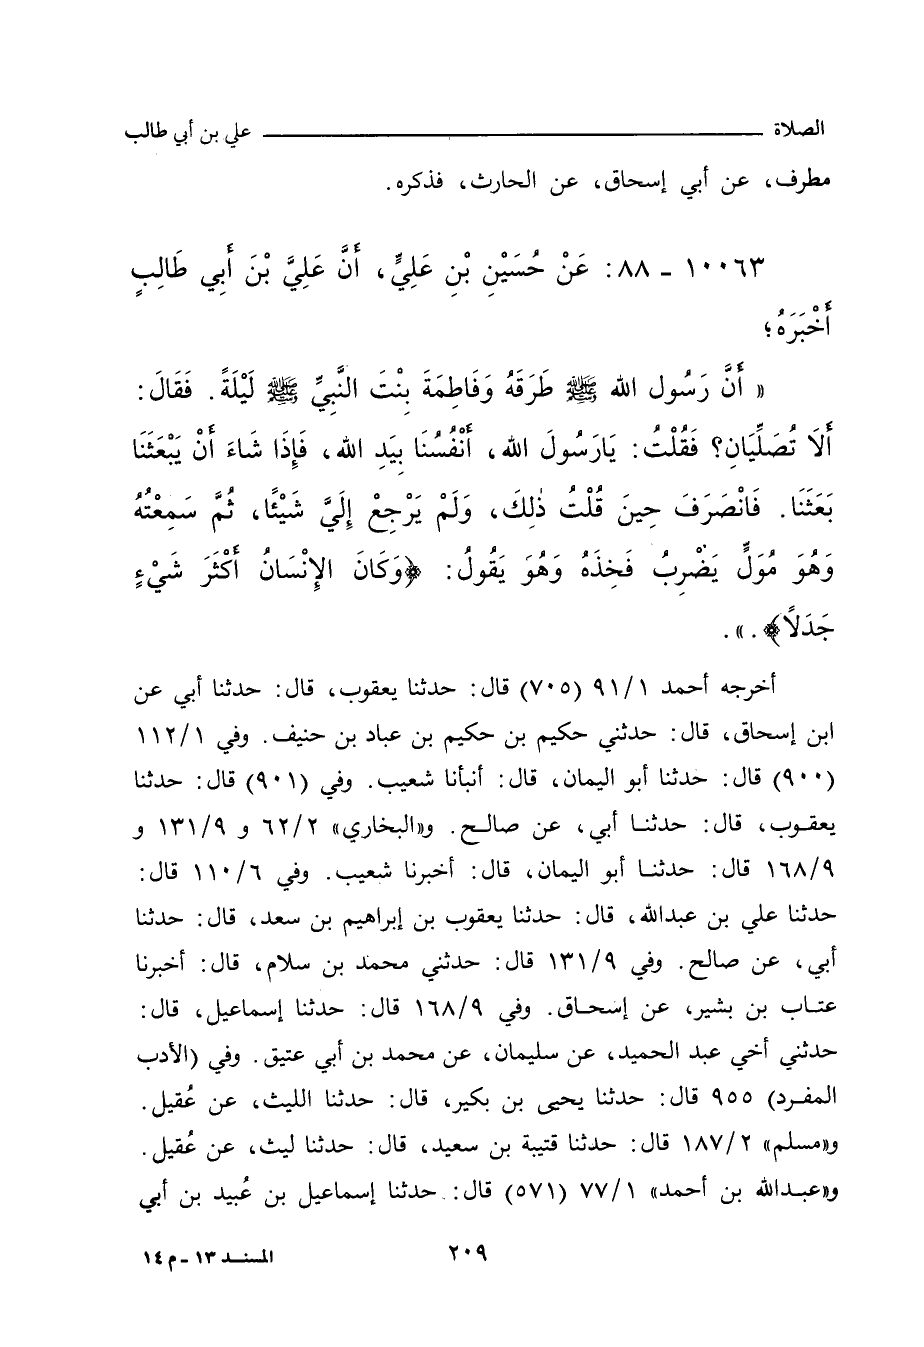 الصلاة علي بن أبي طالب
مطرف، عن أبي إسحاق، عن الحارث، فذكره.
١٠٠٦٣ - ٨٨: عَنْ حُسَيْنِ بْنِ عَلِيٍّ، أَنَّ عَلِيَّ بْنَ أَبِي طَالِبٍ
أَخْبَرَهُ؛
« أَنَّ رَسُول الله ﷺ طَرَقَهُ وَفَاطِمَةَ بِنْتَ النَّبِيِّ ﷺ لَيْلَةً. فَقَالَ:
أَلَا تُصَلِّيَانِ؟ فَقُلْتُ: يَارَسُولَ الله، أَنْفُسُنَا بِيَدِ الله، فَإِذَا شَاءَ أَنْ يَبْعَثَنَا
بَعَثَنَا. فَانْصَرَفَ حِينَ قُلْتُ ذٰلِكَ، وَلَمْ يَرْجِعْ إِلَيَّ شَيْئًا، ثُمَّ سَمِعْتُهُ
وَهُوَ مُوَلٍّ يَضْرِبُ فَخِذَهُ وَهُوَ يَقُولُ: ﴿وَكَانَ الإِنْسَانُ أَكْثَرَ شَيْءٍ
جَدَلاً﴾.».
أخرجه أحمد ٩١/١ (٧٠٥) قال: حدثنا يعقوب، قال: حدثنا أبي عن
ابن إسحاق، قال: حدثني حكيم بن حكيم بن عباد بن حنيف. وفي ١١٢/١
(٩٠٠) قال: حدثنا أبو اليمان، قال: أنبأنا شعيب. وفي (٩٠١) قال: حدثنا
يعقوب، قال: حدثنا أبي، عن صالح. و«البخاري» ٦٢/٢ و ١٣١/٩ و
١٦٨/٩ قال: حدثنا أبو اليمان، قال: أخبرنا شعيب. وفي ١١٠/٦ قال:
حدثنا علي بن عبدالله، قال: حدثنا يعقوب بن إبراهيم بن سعد، قال: حدثنا
أبي، عن صالح. وفي ١٣١/٩ قال: حدثني محمد بن سلام، قال: أخبرنا
عتاب بن بشير، عن إسحاق. وفي ١٦٨/٩ قال: حدثنا إسماعيل، قال:
حدثني أخي عبد الحميد، عن سليمان، عن محمد بن أبي عتيق. وفي (الأدب
المفرد) ٩٥٥ قال: حدثنا يحيى بن بكير، قال: حدثنا الليث، عن عُقيل.
و«مسلم» ١٨٧/٢ قال: حدثنا قتيبة بن سعيد، قال: حدثنا ليث، عن عُقيل.
و«عبدالله بن أحمد» ٧٧/١ (٥٧١) قال: حدثنا إسماعيل بن عُبيد بن أبي
٢٠٩ المسند ١٣ - م ١٤